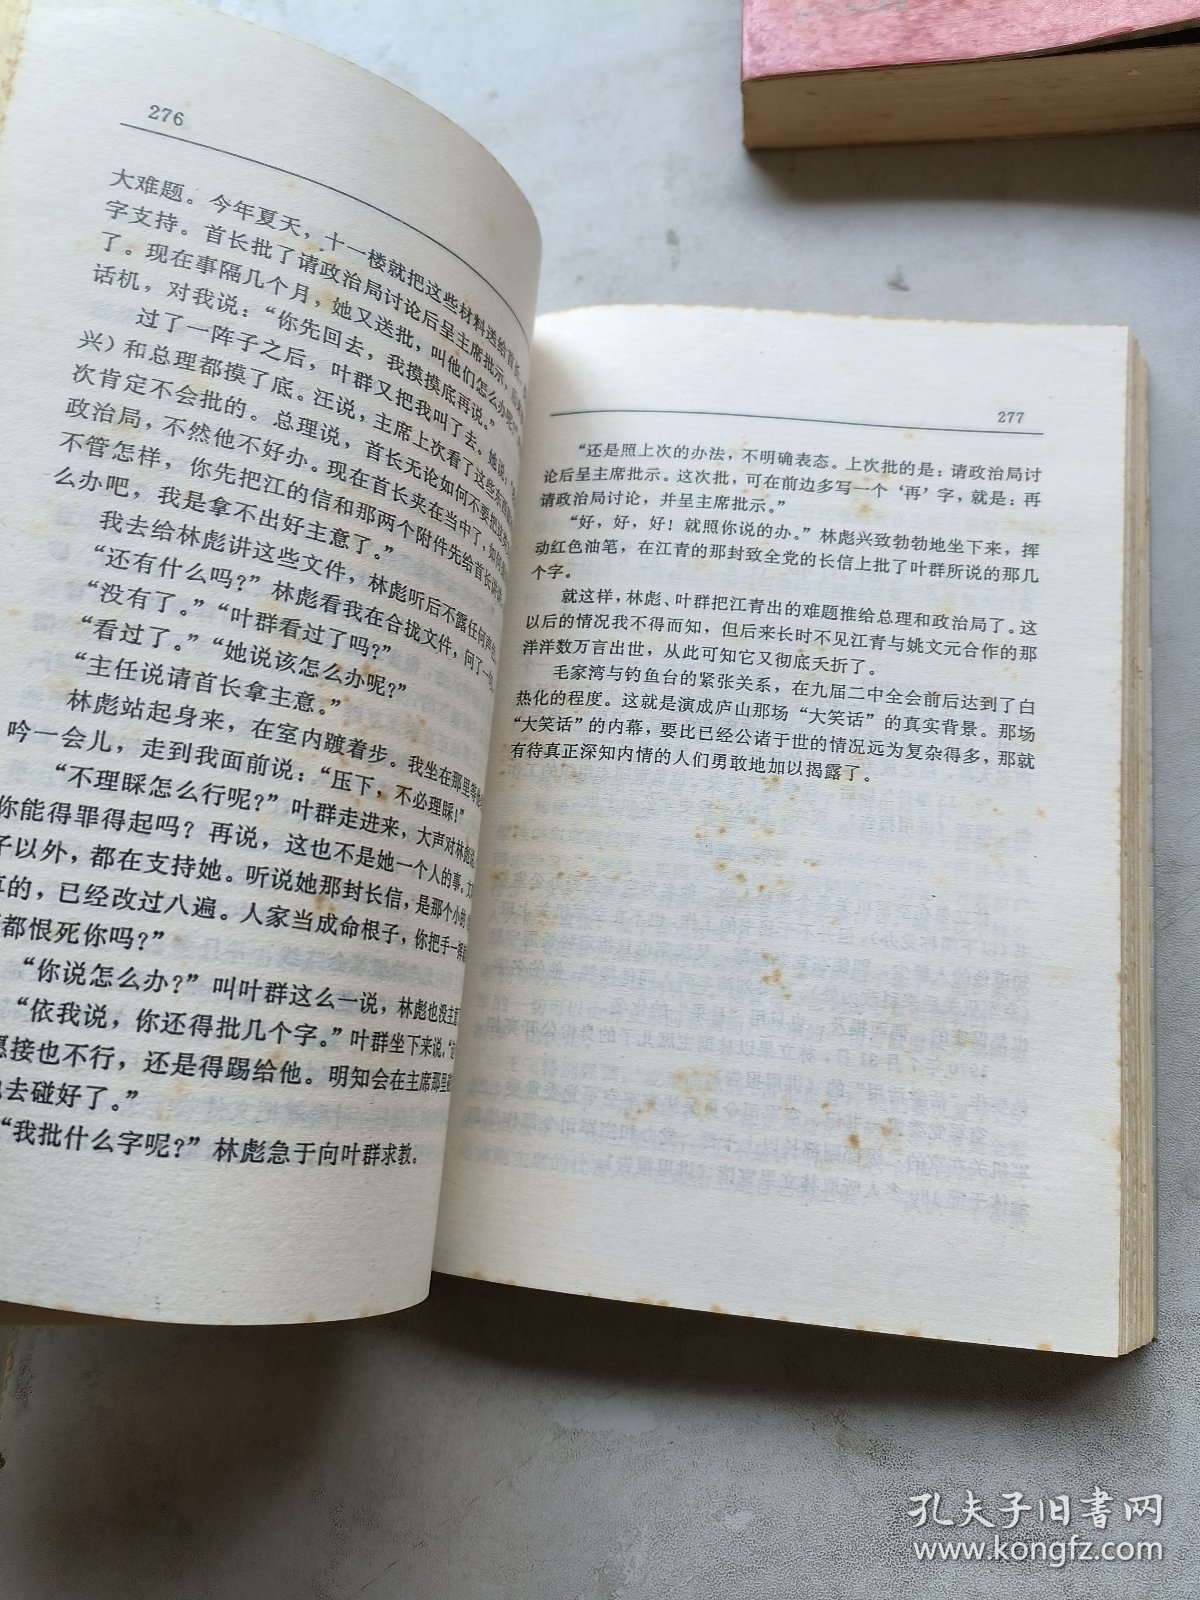 276
大难题。今年夏天，十一楼就把这些材料送给首长，
字支持。首长批了请政治局讨论后呈主席批示，后
了。现在事隔几个月，她又送批，叫他们怎么办呢？”
话机，对我说：“你先回去，我摸摸底再说。”
过了一阵子之后，叶群又把我叫了去。她说：
兴）和总理都摸了底。汪说，主席上次看了这些东西
次肯定不会批的。总理说，首长无论如何不要把这
政治局，不然他不好办。现在首长夹在当中了，如何
不管怎样，你先把江的信和那两个附件先给首长讲讲
么办吧，我是拿不出好主意了。”
我去给林彪讲这些文件，林彪听后不露任何声色。
“还有什么吗？”林彪看我在合拢文件，问了一句。
“没有了。”“叶群看过了吗？”
“看过了。”“她说该怎么办呢？”
“主任说请首长拿主意。”
林彪站起身来，在室内踱着步。我坐在那里等他
吟一会儿，走到我面前说：“压下，不必理睬！”
“不理睬怎么行呢？”叶群走进来，大声对林彪说
你能得罪得起吗？再说，这也不是她一个人的事。
子以外，都在支持她。听说她那封长信，是那个小的
的，已经改过八遍。人家当成命根子，你把手一挥
都恨死你吗？”
“你说怎么办？”叫叶群这么一说，林彪也没主意
“依我说，你还得批几个字。”叶群坐下来说，
接也不行，还是得踢给他。明知会在主席那里
去碰好了。”
“我批什么字呢？”林彪急于向叶群求教。
277
“还是照上次的办法，不明确表态。上次批的是：请政治局讨
论后呈主席批示。这次批，可在前边多写一个‘再’字，就是：再
请政治局讨论，并呈主席批示。”
“好，好，好！就照你说的办。”林彪兴致勃勃地坐下来，挥
动红色油笔，在江青的那封致全党的长信上批了叶群所说的那几
个字。
就这样，林彪、叶群把江青出的难题推给总理和政治局了。这
以后的情况我不得而知，但后来长时不见江青与姚文元合作的那
洋洋数万言出世，从此可知它又彻底夭折了。
毛家湾与钓鱼台的紧张关系，在九届二中全会前后达到了白
热化的程度。这就是演成庐山那场“大笑话”的真实背景。那场
“大笑话”的内幕，要比已经公诸于世的情况远为复杂得多，那就
有待真正深知内情的人们勇敢地加以揭露了。
孔夫子旧书网
www.kongfz.com